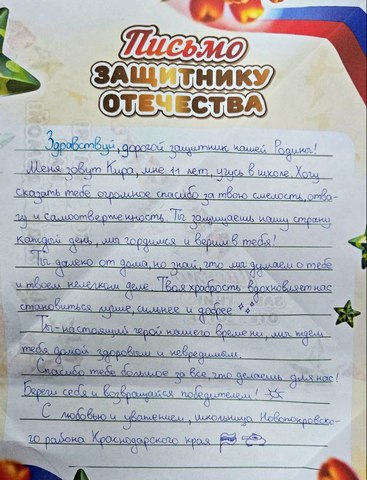 Письмо
ЗАЩИТНИКУ
ОТЕЧЕСТВА
Здравствуй, дорогой защитник нашей Родины!
Меня зовут Кира, мне 11 лет, учусь в школе. Хочу
сказать тебе огромное спасибо за твою смелость, отва-
гу и самоотверженность. Ты защищаешь нашу страну
каждый день, мы гордимся и верим в тебя!
Ты далеко от дома, но знай, что мы думаем о тебе
и твоем нелегком деле. Твоя храбрость вдохновляет нас
становиться лучше, сильнее и добрее
Ты - настоящий герой нашего времени, мы ждем
тебя домой здоровым и невредимым.
Спасибо тебе большое за все, что делаешь для нас!
Береги себя и возвращайся победителем!
С любовью и уважением, школьница Новопокровско-
го района Краснодарского края